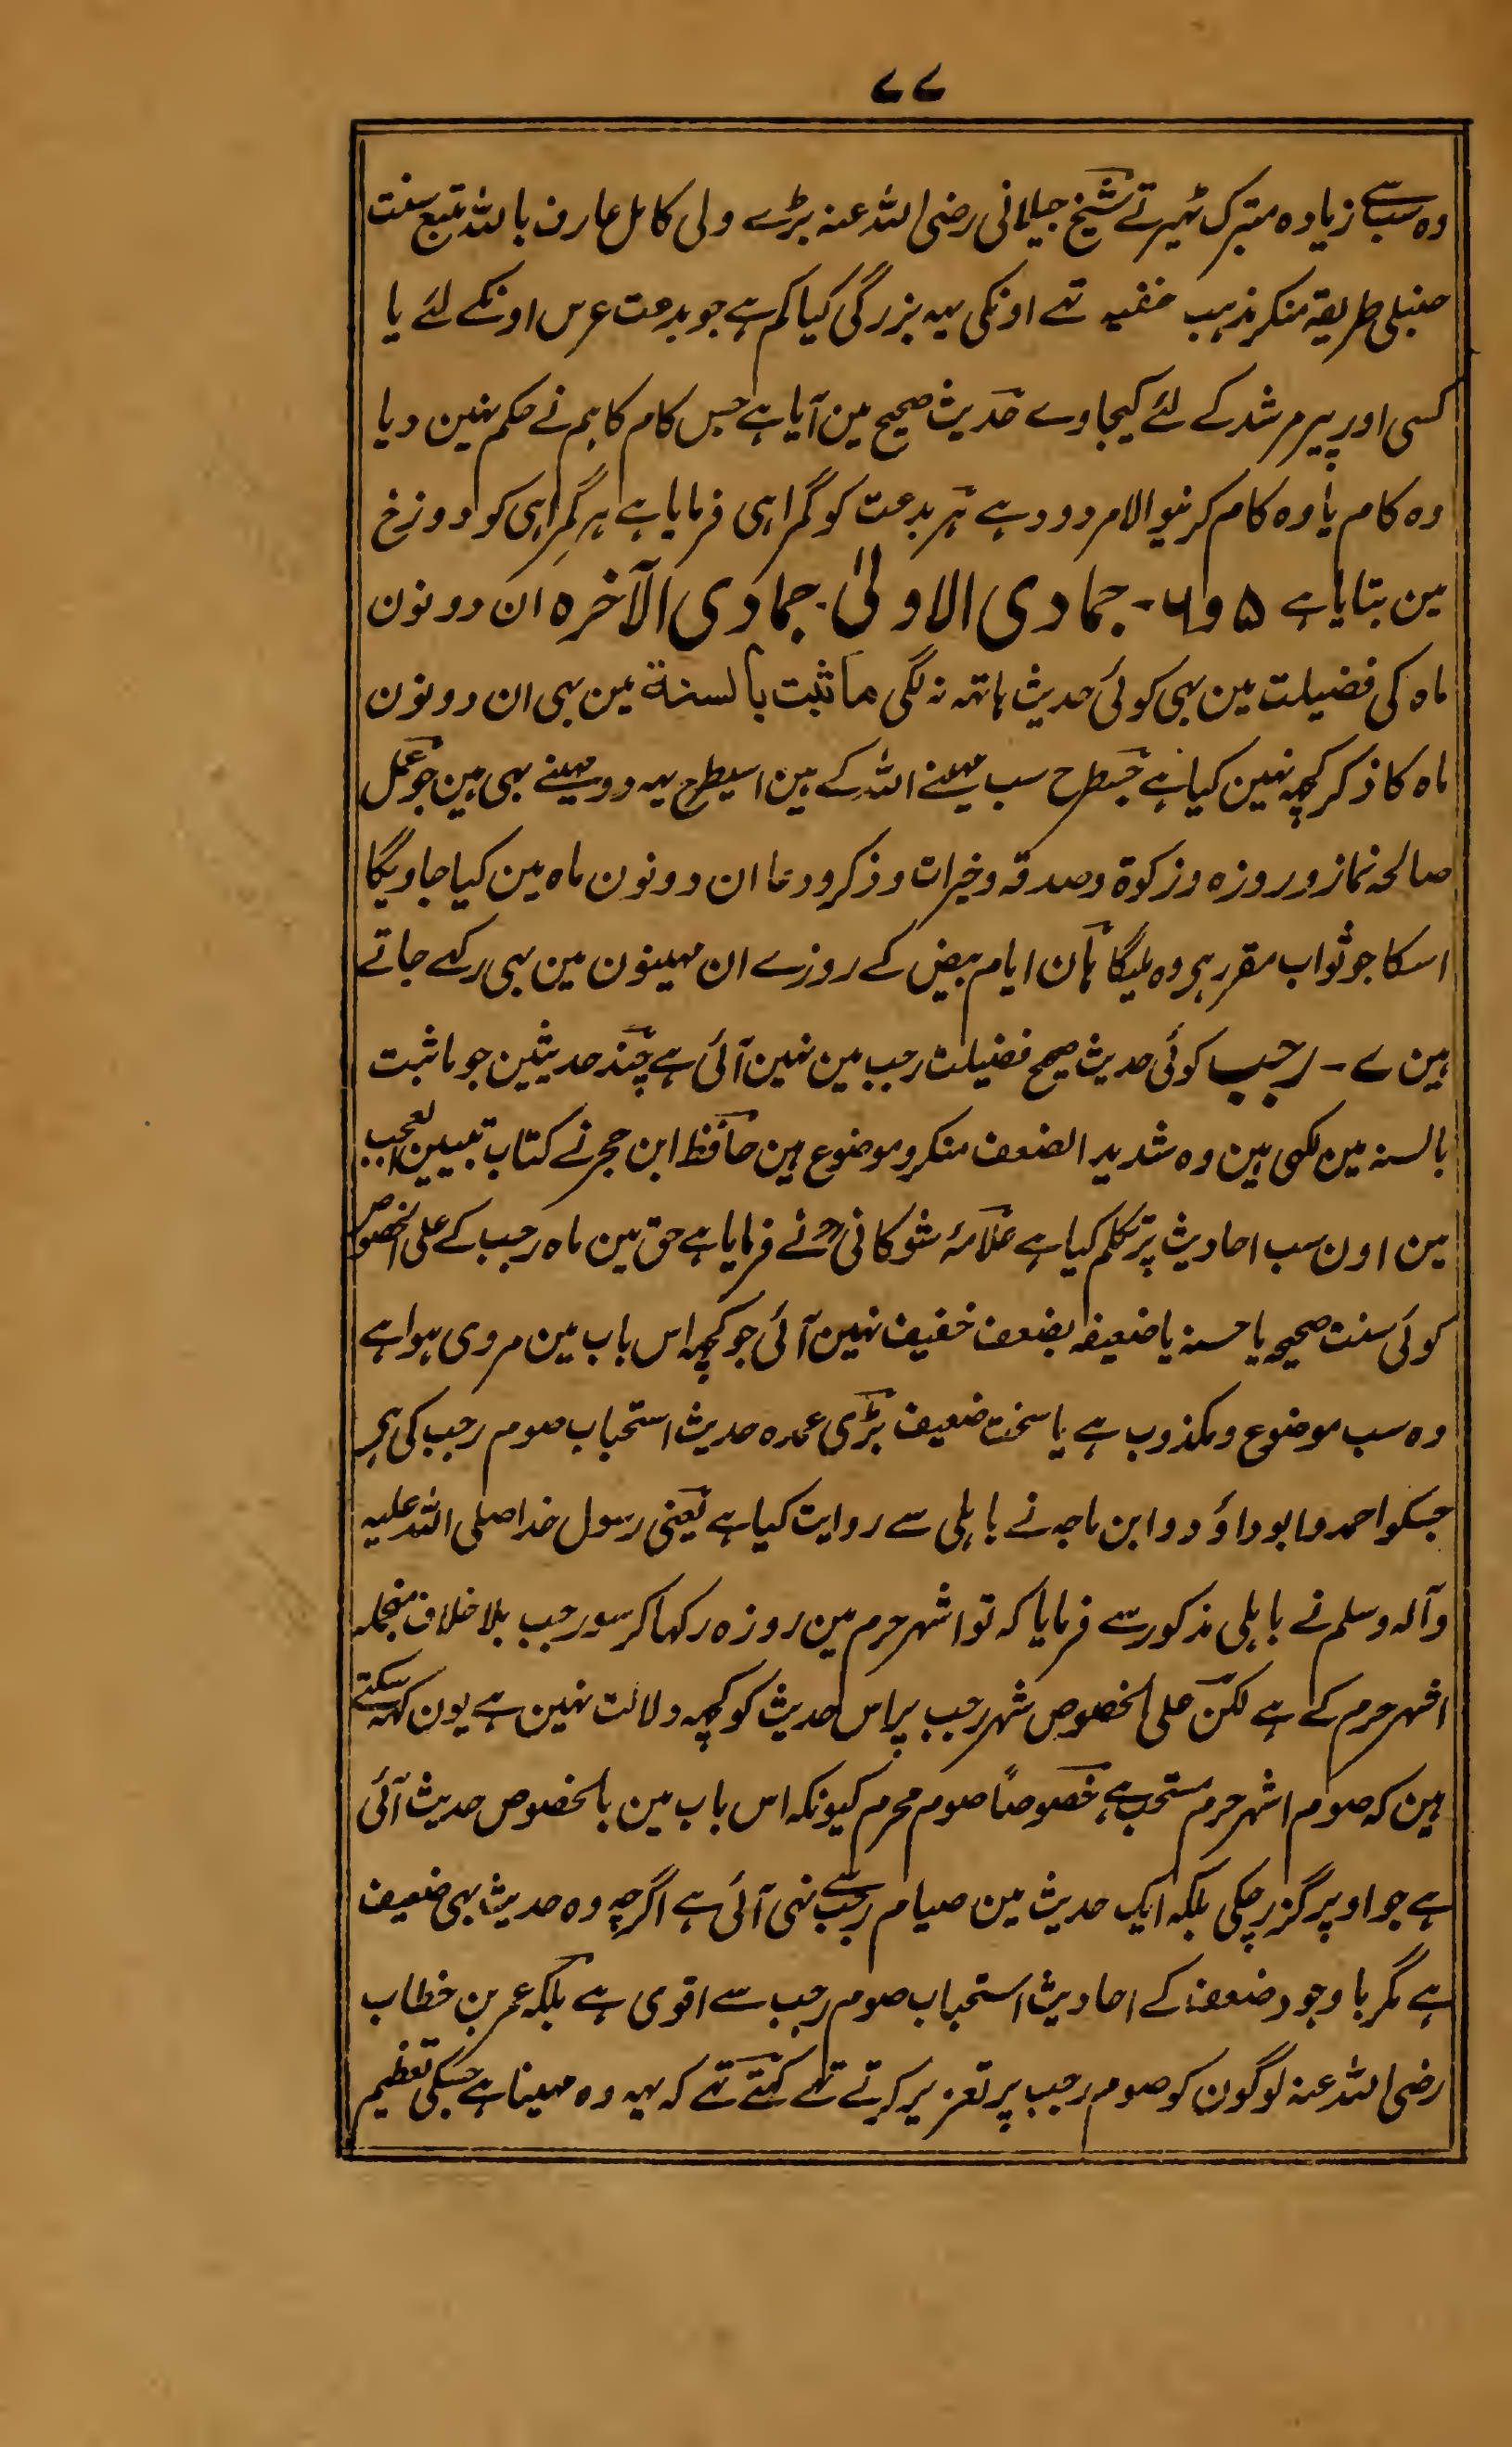 ۷۷
وہ سب سے زیادہ متبرک ٹہیرتے شیخ جیلانی رضی اللہ عنہ بڑے ولی کامل عارف باللہ متبع سنت
حنبلی طریقہ منکر مذہب حنفیہ تہے اونکی یہہ بزرگی کیا کم ہے جو بدعت عرس اونکے لئے یا
کسی اور پیر مرشد کے لئے کیجاوے حدیث صحیح مین آیا ہے جس کام کا ہم نے حکم نہین دیا
وہ کام یا وہ کام کرنیوالا مردود ہے ہر بدعت کو گمراہی فرمایا ہے ہر گمراہی کو دوزخ
مین بتایا ہے ۵ و ۶ - جمادی الاولیٰ . جمادی الآخرہ ان دونون
ماہ کی فضیلت مین بہی کوئی حدیث ہاتہہ نہ لگی ما ثبت بالسنة مین بہی ان دونون
ماہ کا ذکر کچہہ نہین کیا ہے جسطرح سب مہینے اللہ کے ہین اسیطرح یہہ دو مہینے بہی ہین جو عمل
صالحہ نماز و روزہ و زکوة و صدقہ و خیرات و ذکر و دعا ان دونون ماہ مین کیا جاویگا
اسکا جو ثواب مقرر ہی وہ ملیگا ہان ایام بیض کے روزے ان مہینون مین بہی رکہے جاتے
ہین ۷ - رجب کوئی حدیث صحیح فضیلت رجب مین نہین آئی ہے چند حدیثین جو ما ثبت
بالسنہ مین لکہی ہین وہ شدید الضعف منکر و موضوع ہین حافظ ابن حجر نے کتاب تبیین العجب
مین اون سب احادیث پر تکلم کیا ہے علامۂ شوکانی رح نے فرمایا ہے حق مین ماہ رجب کے علی الخصوص
کوئی سنت صحیحہ یا حسنہ یا ضعیفہ بضعف خفیف نہین آئی جو کچہہ اس باب مین مروی ہوا ہے
وہ سب موضوع و مکذوب ہے یا سخت ضعیف بڑی عمدہ حدیث استحباب صوم رجب کی ہی
جسکو احمد و ابو داؤد و ابن ماجہ نے باہلی سے روایت کیا ہے یعنی رسول خدا صلی اللہ علیہ
وآلہ وسلم نے باہلی مذکور سے فرمایا کہ تو اشہر حرم مین روزہ رکہا کر سو رجب بلا خلاف منجملہ
اشہر حرم کے ہے لکن علی الخصوص شہر رجب پر اس حدیث کو کچہہ دلالت نہین ہے یون کہہ سکتے
ہین کہ صوم اشہر حرم مستحب ہے خصوصاً صوم محرم کیونکہ اس باب مین بالخصوص حدیث آئی
ہے جو اوپر گزر چکی بلکہ ایک حدیث مین صیام رجب سے نہی آئی ہے اگرچہ وہ حدیث بہی ضعیف
ہے مگر باوجود ضعف کے احادیث استحباب صوم رجب سے اقوی ہے بلکہ عمر بن خطاب
رضی اللہ عنہ لوگون کو صوم رجب پر تعزیر کرتے تہے کہتے تہے کہ یہہ وہ مہینا ہے جسکی تعظیم